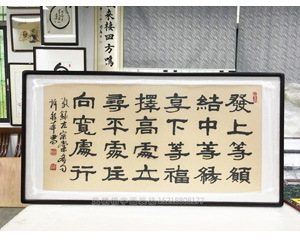 發上等願
結中等緣
享下等福
擇高處立
尋平處住
向寬處行
左宗棠